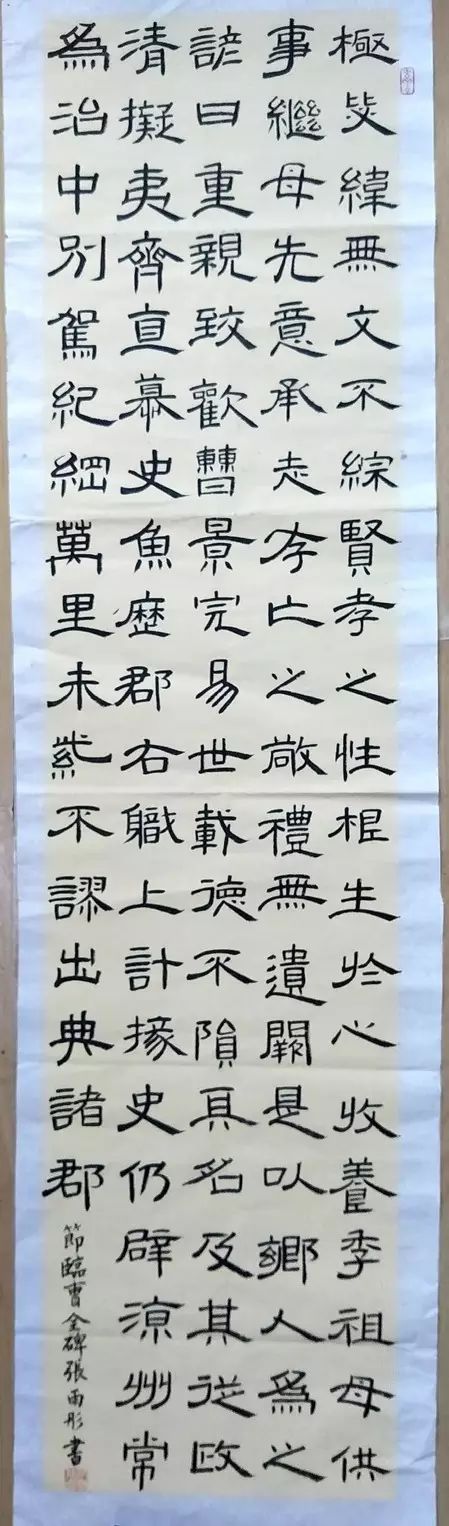 極毖緯無文不綜賢孝之性根生於心收養季祖母供
事繼母先意承志存亡之敬禮無遺闕是以鄉人爲之
諺曰重親致歡曹景完易世載德不隕其名及其從政
清擬夷齊直慕史魚歷郡右職上計掾史仍辟涼州常
爲治中別駕紀綱萬里朱紫不謬出典諸郡
節臨曹全碑張雨彤書